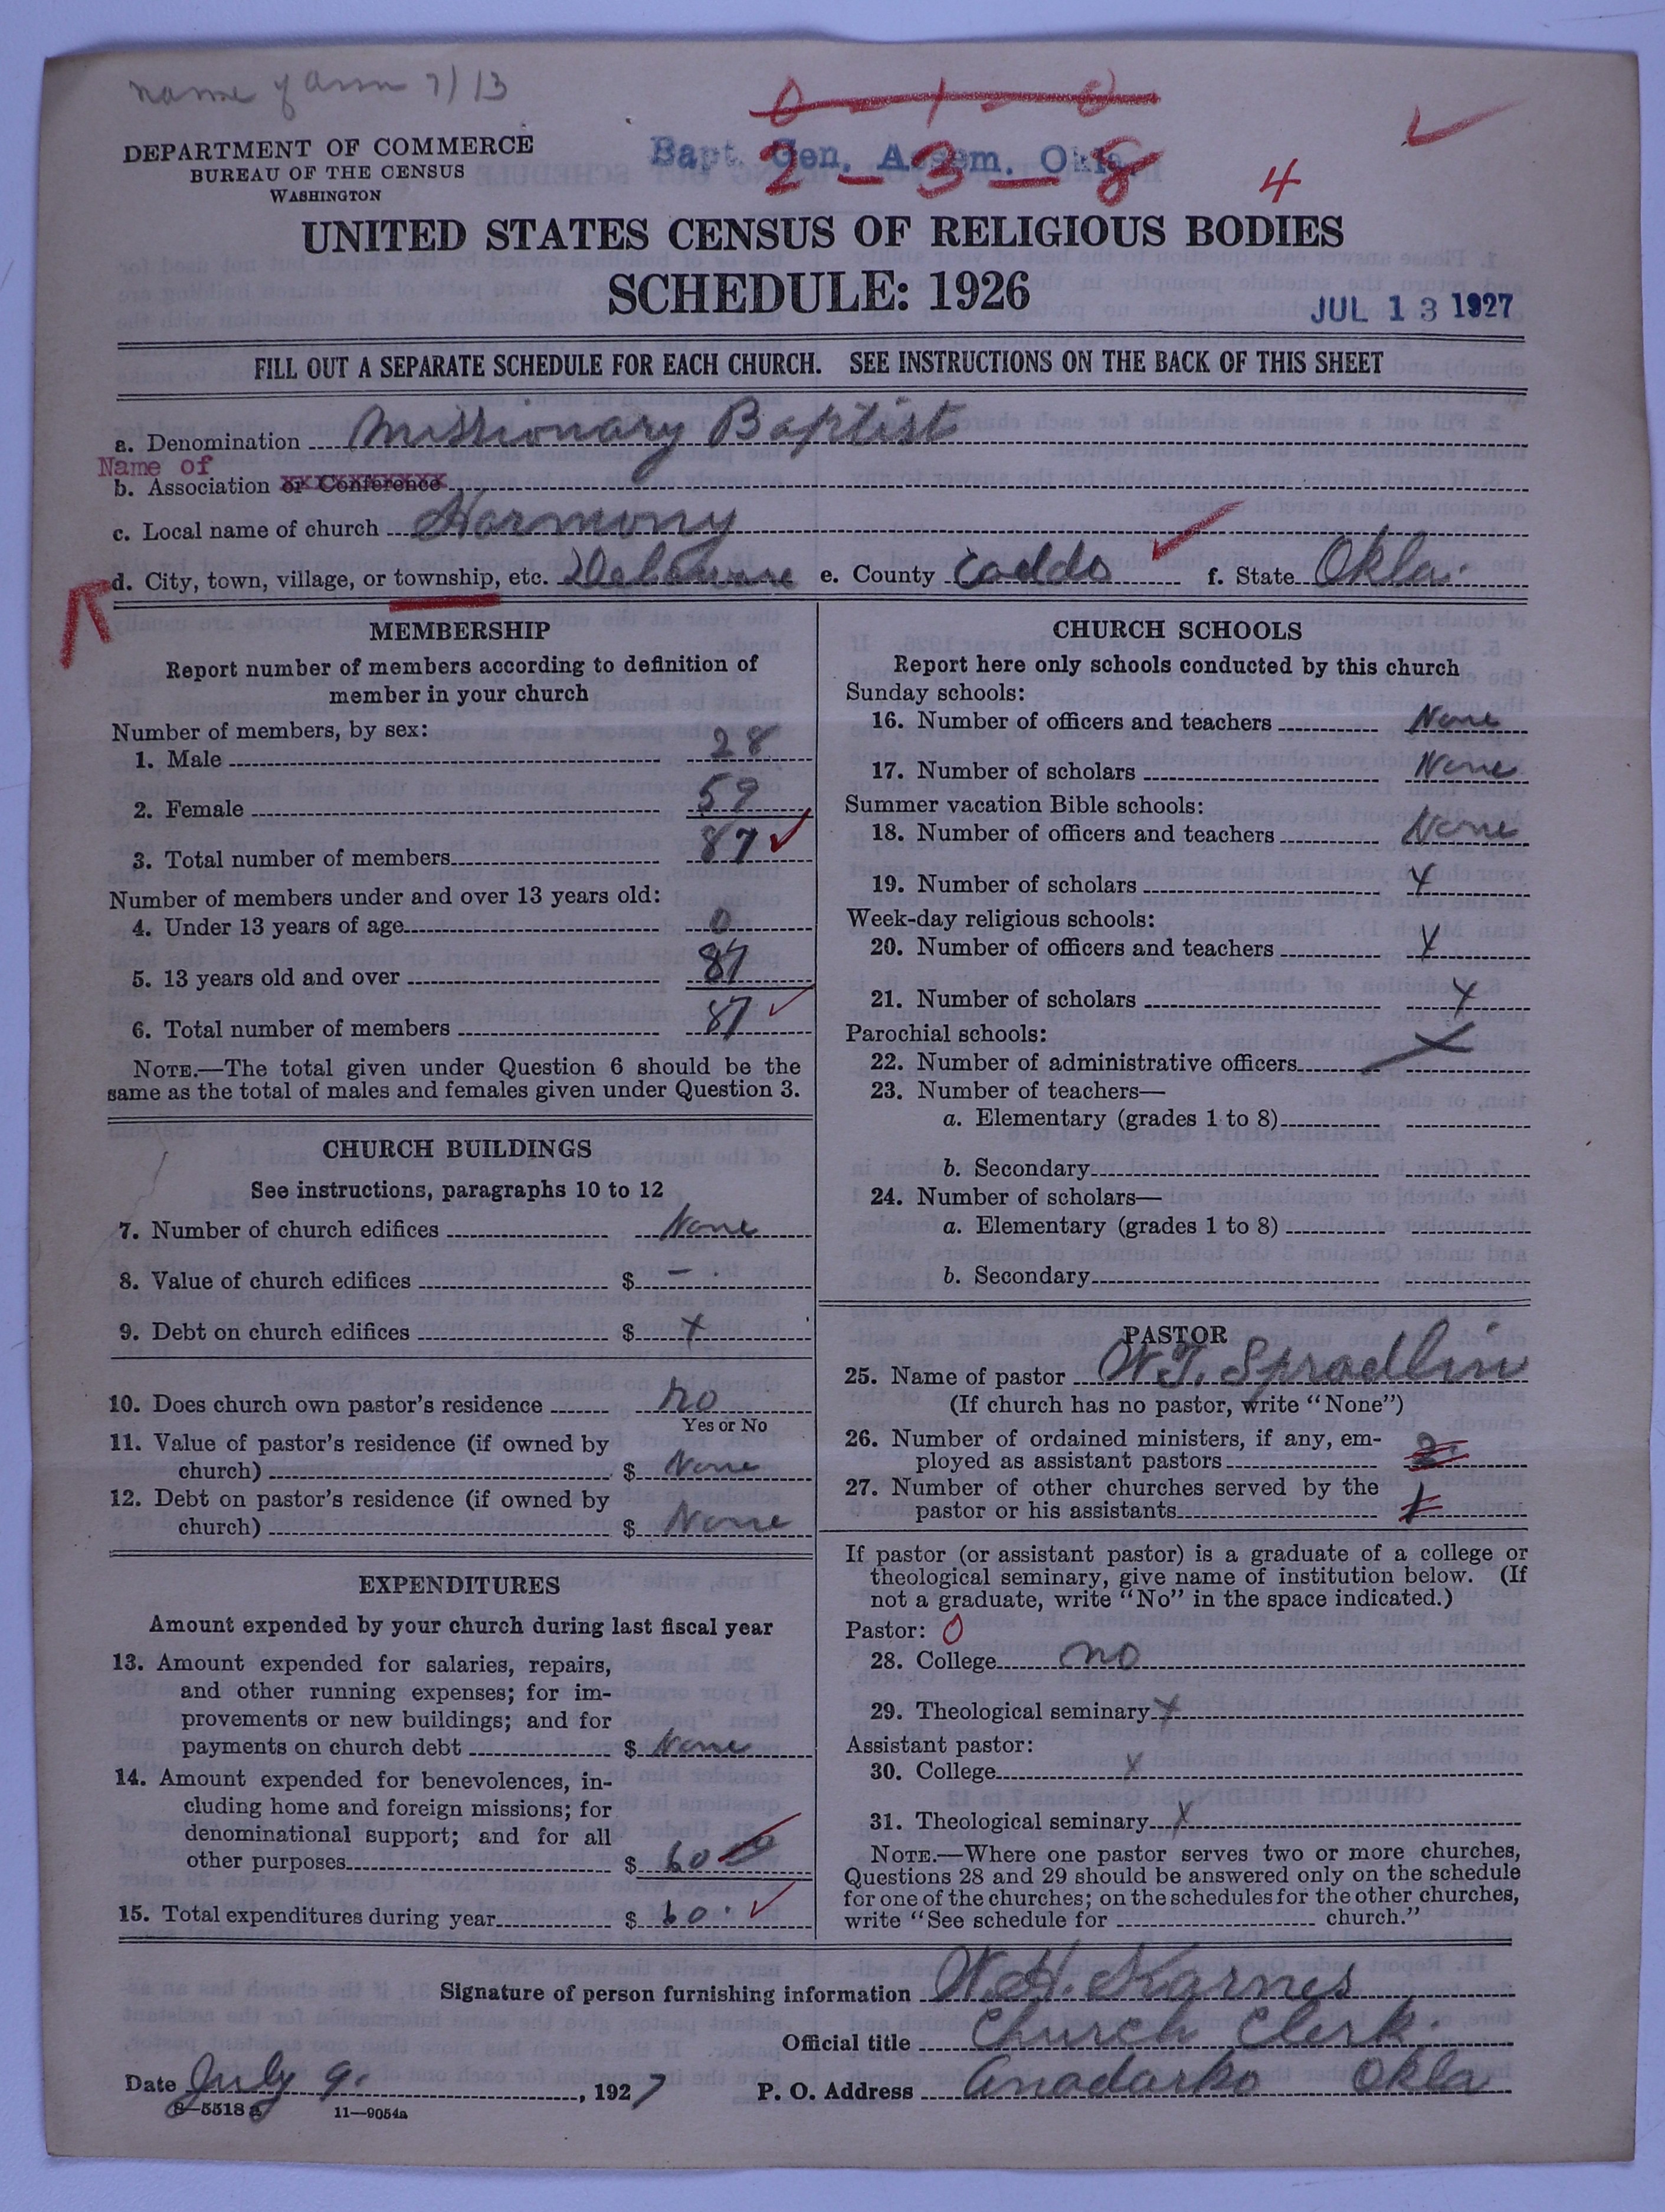 name of assn 7/13
0 - 1 - 0
DEPARTMENT OF COMMERCE
BUREAU OF THE CENSUS
WASHINGTON
Bapt. Gen. Assem. Okla.
2 - 3 - 8
4
UNITED STATES CENSUS OF RELIGIOUS BODIES
SCHEDULE: 1926
JUL 13 1927
FILL OUT A SEPARATE SCHEDULE FOR EACH CHURCH. SEE INSTRUCTIONS ON THE BACK OF THIS SHEET
a. Denomination Missionary Baptist
Name of
b. Association or Conference
c. Local name of church Harmony
d. City, town, village, or township, etc. Delaware e. County Caddo f. State Okla.
MEMBERSHIP
Report number of members according to definition of
member in your church
Number of members, by sex:
1. Male 28
2. Female 59
3. Total number of members 87
Number of members under and over 13 years old:
4. Under 13 years of age 0
5. 13 years old and over 87
6. Total number of members 87
NOTE.—The total given under Question 6 should be the
same as the total of males and females given under Question 3.
CHURCH BUILDINGS
See instructions, paragraphs 10 to 12
7. Number of church edifices None
8. Value of church edifices $ —
9. Debt on church edifices $ x
10. Does church own pastor's residence no
Yes or No
11. Value of pastor's residence (if owned by
church) $ None
12. Debt on pastor's residence (if owned by
church) $ None
EXPENDITURES
Amount expended by your church during last fiscal year
13. Amount expended for salaries, repairs,
and other running expenses; for im-
provements or new buildings; and for
payments on church debt $ None
14. Amount expended for benevolences, in-
cluding home and foreign missions; for
denominational support; and for all
other purposes $ 60 00
15. Total expenditures during year $ 60.
CHURCH SCHOOLS
Report here only schools conducted by this church
Sunday schools:
16. Number of officers and teachers None
17. Number of scholars None
Summer vacation Bible schools:
18. Number of officers and teachers None
19. Number of scholars x
Week-day religious schools:
20. Number of officers and teachers x
21. Number of scholars x
Parochial schools:
22. Number of administrative officers x
23. Number of teachers—
a. Elementary (grades 1 to 8)
b. Secondary
24. Number of scholars—
a. Elementary (grades 1 to 8)
b. Secondary
PASTOR
25. Name of pastor W.T. Spradlin
(If church has no pastor, write "None")
26. Number of ordained ministers, if any, em-
ployed as assistant pastors 2.
27. Number of other churches served by the
pastor or his assistants 1
If pastor (or assistant pastor) is a graduate of a college or
theological seminary, give name of institution below. (If
not a graduate, write "No" in the space indicated.)
Pastor: 0
28. College no
29. Theological seminary x
Assistant pastor:
30. College x
31. Theological seminary x
NOTE.—Where one pastor serves two or more churches,
Questions 28 and 29 should be answered only on the schedule
for one of the churches; on the schedules for the other churches,
write "See schedule for church."
Signature of person furnishing information W.H. Karnes
Official title Church Clerk.
Date July 9. , 1927 P. O. Address Anadarko Okla
8—5518 a 11—9054a